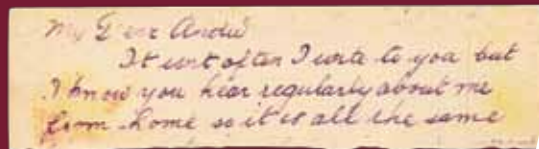 My Dear Andrew
It isnt often I write to you but
I know you hear regularly about me
from home so it is all the same